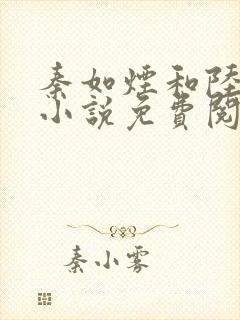 秦如煙和陸
小說免費閱
秦小雾